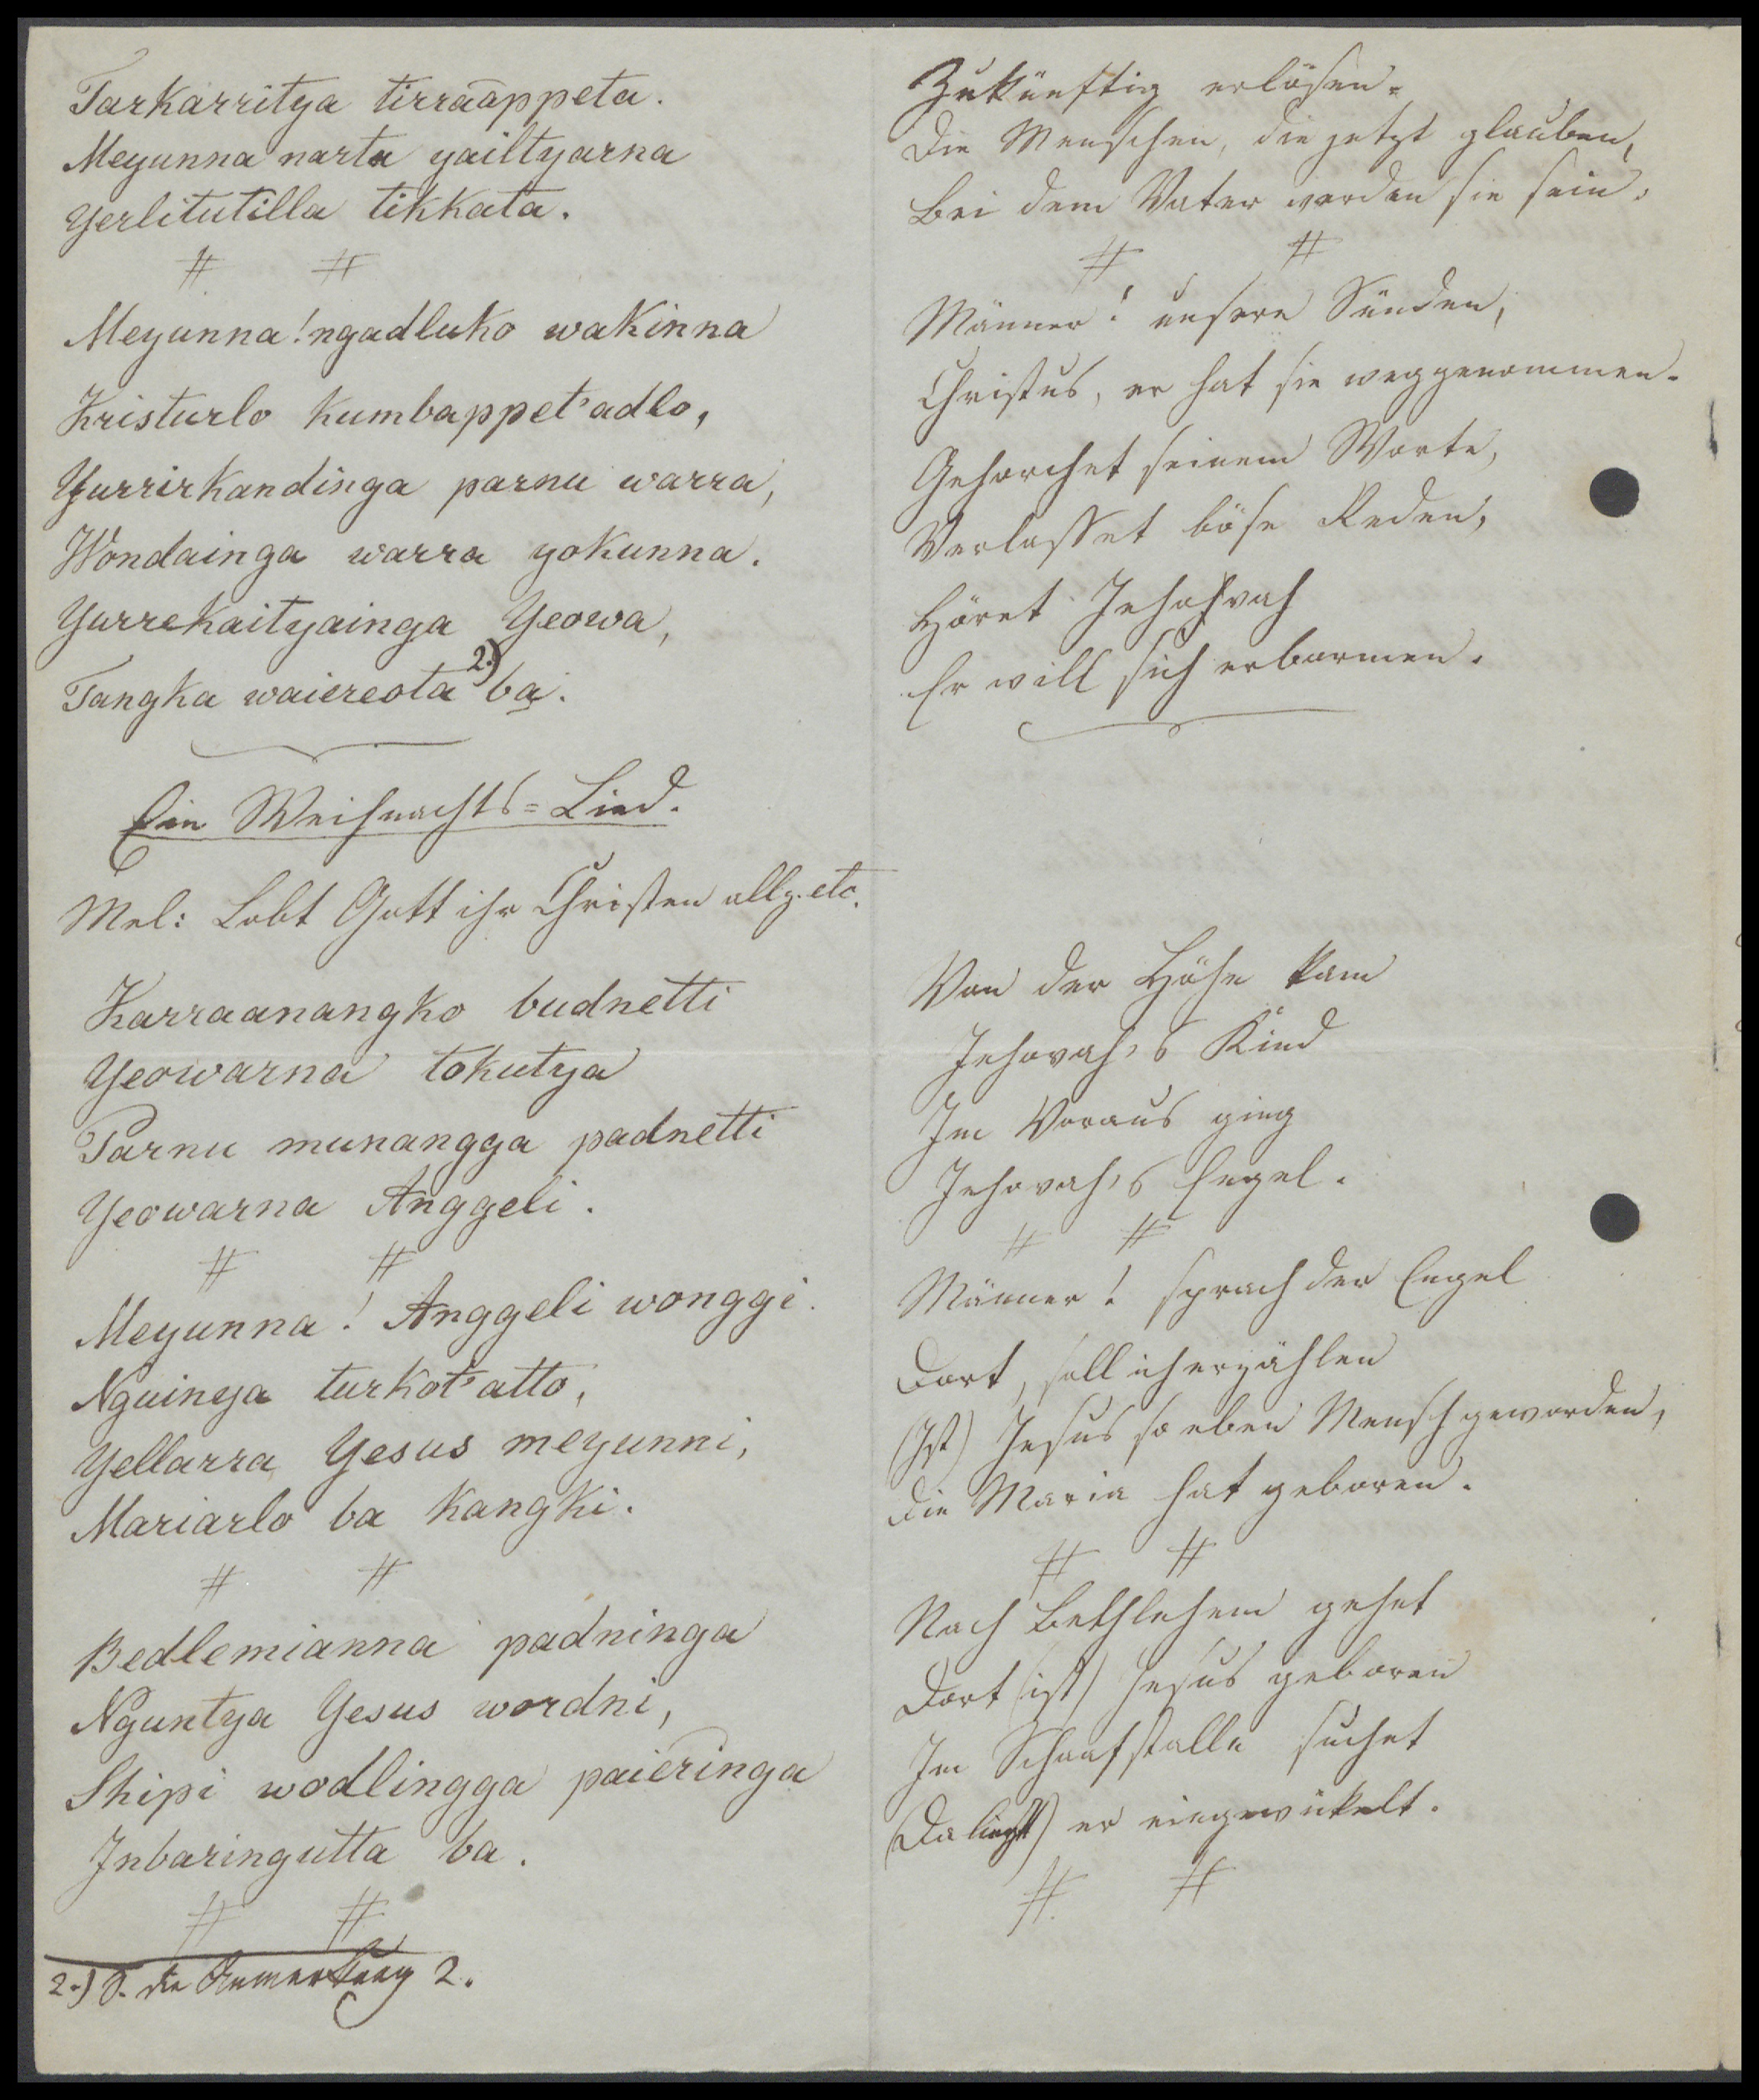 Tarkarritya tirraappeta.
Meyunna narta yailtyarna
Yerlitutilla tikkata.
# #
Meyunna! ngadluko wakinna
Kristurlo kumbappet'adlo,
Yurrirkandinga parnu warra,
Wondainga warra yokunna.
Yurrekaityainga Yeowa,
Tangka waiereota 2.) ba.
Ein Weihnachts=Lied.
Mel: Lobt Gott ihr Christen allz. etc.
Karraanangko budnetti
Yeowarna tokutya
Parnu munangga padnetti
Yeowarna Anggeli.
# #
Meyunna! Anggeli wonggi.
Nguinya turkot'atto,
Yellarra Yesus meyunni,
Mariarlo ba kangki.
# #
Bedlemianna padninga
Nguntya Yesus wordni,
Shipi wodlingga paieringa
Inbaringutta ba.
# #
2.) S. die Anmerkung 2.
Zukünftig erlösen.
Die Menschen, die jetzt glauben,
Bei dem Vater werden sie sein.
# #
Männer! unsere Sünden,
Christus, er hat sie weggenommen.
Gehorchet seinem Worte,
Verlasset böse Reden,
Höret Jehovah
Er will sich erbarmen.
Von der Höhe kam
Jehovah's Kind
Im Voraus ging
Jehovah's Engel.
# #
Männer! sprach der Engel
Dort, soll ich erzählen
(Ist) Jesus so eben Mensch geworden,
Die Maria hat geboren.
# #
Nach Bethlehem gehet
Dort (ist) Jesus geboren
Im Schaafstalle suchet
(Da liegt) er eingewickelt.
# #